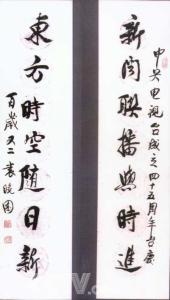 中央电视台成立四十五周年台庆
新闻联播与時進
東方時空随日新
百岁又二 袁晓园